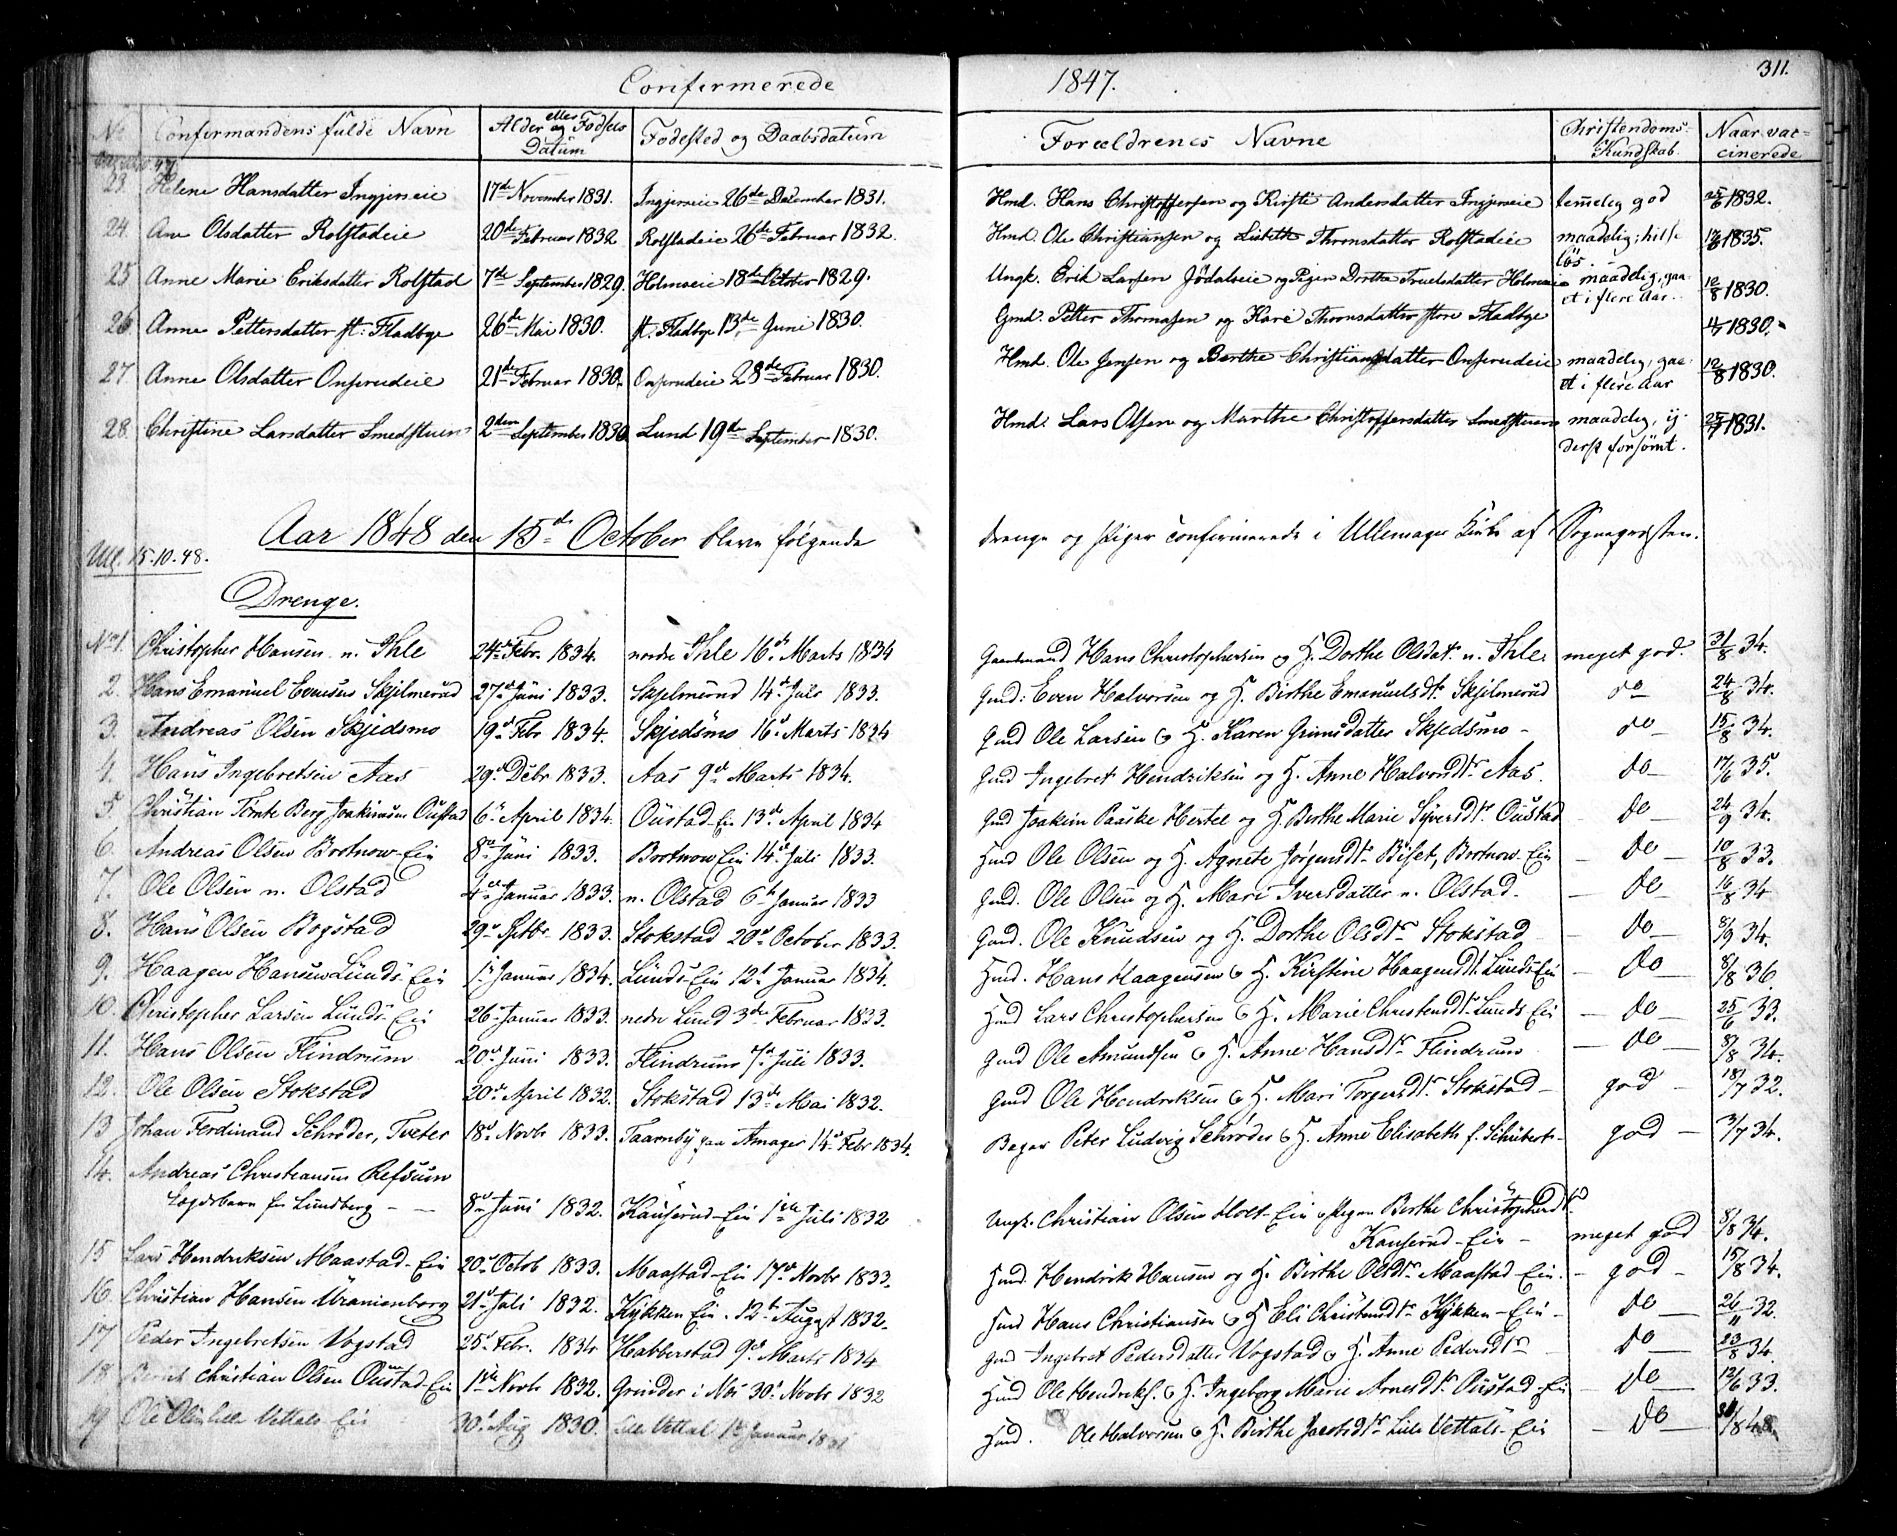 Confirmerede 1847. 311.
No Confirmandens fulde Navn Alder eller og Fødsels Datum Fødested og Daabsdatum Forældrenes Navne Christendoms-Kundskab. Naar vaccinerede
23. Helene Hansdatter Ingjerseie 17de November 1831. Ingjerseie 26de December 1831. Hmd. Hans Christoffersen og Kirsti Andersdatter Ingjerseie temelig god 25/6 1832.
24. Ane Olsdatter Rolstadeie 20de Februar 1832 Rolstadeie 26de Februar 1832. Hmd. Ole Christiansen og Lisbeth Thronsdatter Rolstadeie maadelig; hilse
løs. 1835.
25 Anne Marie Eriksdatter Rolstad 7de September 1829. Holmseie 18de October 1829. Ungk. Erik Larsen Jødalseie og Pigen Dorthe Truelsdatter Holmseie maadelig, gaa-
et i flere Aar. 12/8 1830.
26 Anne Pettersdatter st. Fladbye 26de Mai 1830. st. Fladbye 13de Juni 1830. Gmd. Petter Thomasen og Kari Thronsdatter store Fladbye 1830.
27 Anne Olsdatter Onsrudeie 21de Februar 1830. Onsrudeie 28de Februar 1830. Hmd. Ole Jensen og Berthe Christiansdatter Onsrudeie maadelig, gaa-
et i flere Aar 12/8 1830.
28. Christine Larsdatter Smedstuen 2den September 1830 Lund 19de September 1830. Hmd. Lars Olsen og Marthe Christoffersdatter Smedstuen maadelig, y-
derst forsømt. 1831.
Aar 1848 den 15de October bleve følgende Drenge og Piger confirmerede i Ullensager Kirke af Sognepræsten.
Ull. 15.10.48.
Drenge.
No 1. Christopher Hansen n. Ihle 24de Febr. 1834. nordre Ihle 16de Marts 1834 Gaardmand Hans Christophersen og H. Dorthe Olsdatr n. Ihle. meget god. 31/8 34.
2. Hans Emanuel Evensen Skjelmerud 27de Juni 1833. Skjelmerud 14de Juli 1833. Gmd: Even Halvorsen og H. Birthe Emanuelsdtr Skjelmerud do 24/8 34.
3. Andreas Olsen Skjedsmo 19de Febr 1834. Skjedsmo 16de Marts 1834 Gmd Ole Larsen og H. Karen Grimsdatter Skjedsmo - do 15/8 34.
4. Hans Ingebretsen Aas 29de Debr 1833. Aas 9de Marts 1834. Gmd Ingebret Hendriksen og H. Anne Halvorsdtr Aas. do 17/6 35.
5. Christian Tørnte Berg Joakimsen Oustad 6te April 1834. Oustad-Ein 13de April 1834 Gmd Joakim Paaske Hertel og H Birthe Marie Syversdtr Oustad do 24/9 34.
6. Andreas Olsen Brotnow-Ein 8de Juni 1833. Brotnow Ein 14de Juli 1833. Hmd Ole Olsen og H. Agnete Jørgensdtr Biset, Brotnow-Ein - do 10/8 33.
7. Ole Olsen n. Olstad 4de Januar 1833. n. Olstad 6te Januar 1833 Gmd. Ole Olsen og H. Mari Iversdatter n. Olstad. - do 16/8 34
8. Hans Olsen Bogstad 29de Septbr 1833. Stokstad 20de October 1833. Gmd. Ole Knudsen og H. Dorthe Olsdtr Stokstad - do 8/9 34.
9. Haagen Hansen Lunds-Ein 1te Januar 1834. Lunds-Ein 12te Januar 1834. Hmd. Hans Haagensen og H. Kirstine Haagensdtr Lunds-Ein - do 8/8 36.
10. Christopher Larsen Lunds-Ein 26de Januar 1833. nedre Lund 3die Februar 1833. Hmd Lars Christophersen og H. Marie Christensdtr Lunds Ein - do 25/6 33.
11. Hans Olsen Flindrum 20de Juni 1833. Flindrum 7de Juli 1833. Gmd Ole Amundsen og H. Anne Hansdtr Flindrum - do 8/8 34.
12. Ole Olsen Stokstad 20de April 1832. Stokstad 13de Mai 1832. Gmd Ole Hendriksen og H. Mari Torgersdtr Stokstad - god 18/7 32.
13 Johan Ferdinand Schrøder, Tveter 18de Novbr 1833. Taarnby paa Amager 14de Febr 1834. Bager Peter Ludvig Schrøder og H. Anne Elisabeth f. Schubert - god 3/7 34.
14. Andreas Christiansen Refsum
Lægdsbarn fra Lundberg - 8de Juni 1832. Kauserud-Ein 1ste Juli 1832 Ungk. Christian Olsen Holt-Ein og Pigen Birthe Christophersdtr
Kauserud-Ein - meget god 8/8 34.
15 Lars Hendriksen Maastad-Ein 20de Octob 1833. Maastad-Ein 17de Novbr 1833. Hmd. Hendrik Hansen og H. Birthe Olsdtr Maastad-Ein. - god - 15/8 34.
16. Christian Hansen Uranienborg 21de Juli 1832. Kykken Ein. 12te August 1832. Hmd Hans Christiansen og H Eli Christensdtr Kykken-Ein - do 26/11 32.
17 Peder Ingebretsen Vogstad 25de Febr. 1834 Habberstad 9de Marts 1834 Gmd Ingebret Pedersdatter Vogstad og H. Anne Pedersdtr - do 23/8 34.
18 Bernt Christian Olsen Oustad-Ein 1ste Novbr 1832. Grinder i Næs 30te Novbr 1832 Hmd Ole Hendriks. og H. Ingeborg Marie Arnesdtr Oustad-Ein - do 12/6 33.
19 Ole Olsen Lille Vettals Ein 30te Aug 1830. Lille Vettal 1te Januar 1831 Hmd. Ole Halvorsen og H. Birthe Jacobsdtr Lille Vettals-Ein - do 48.